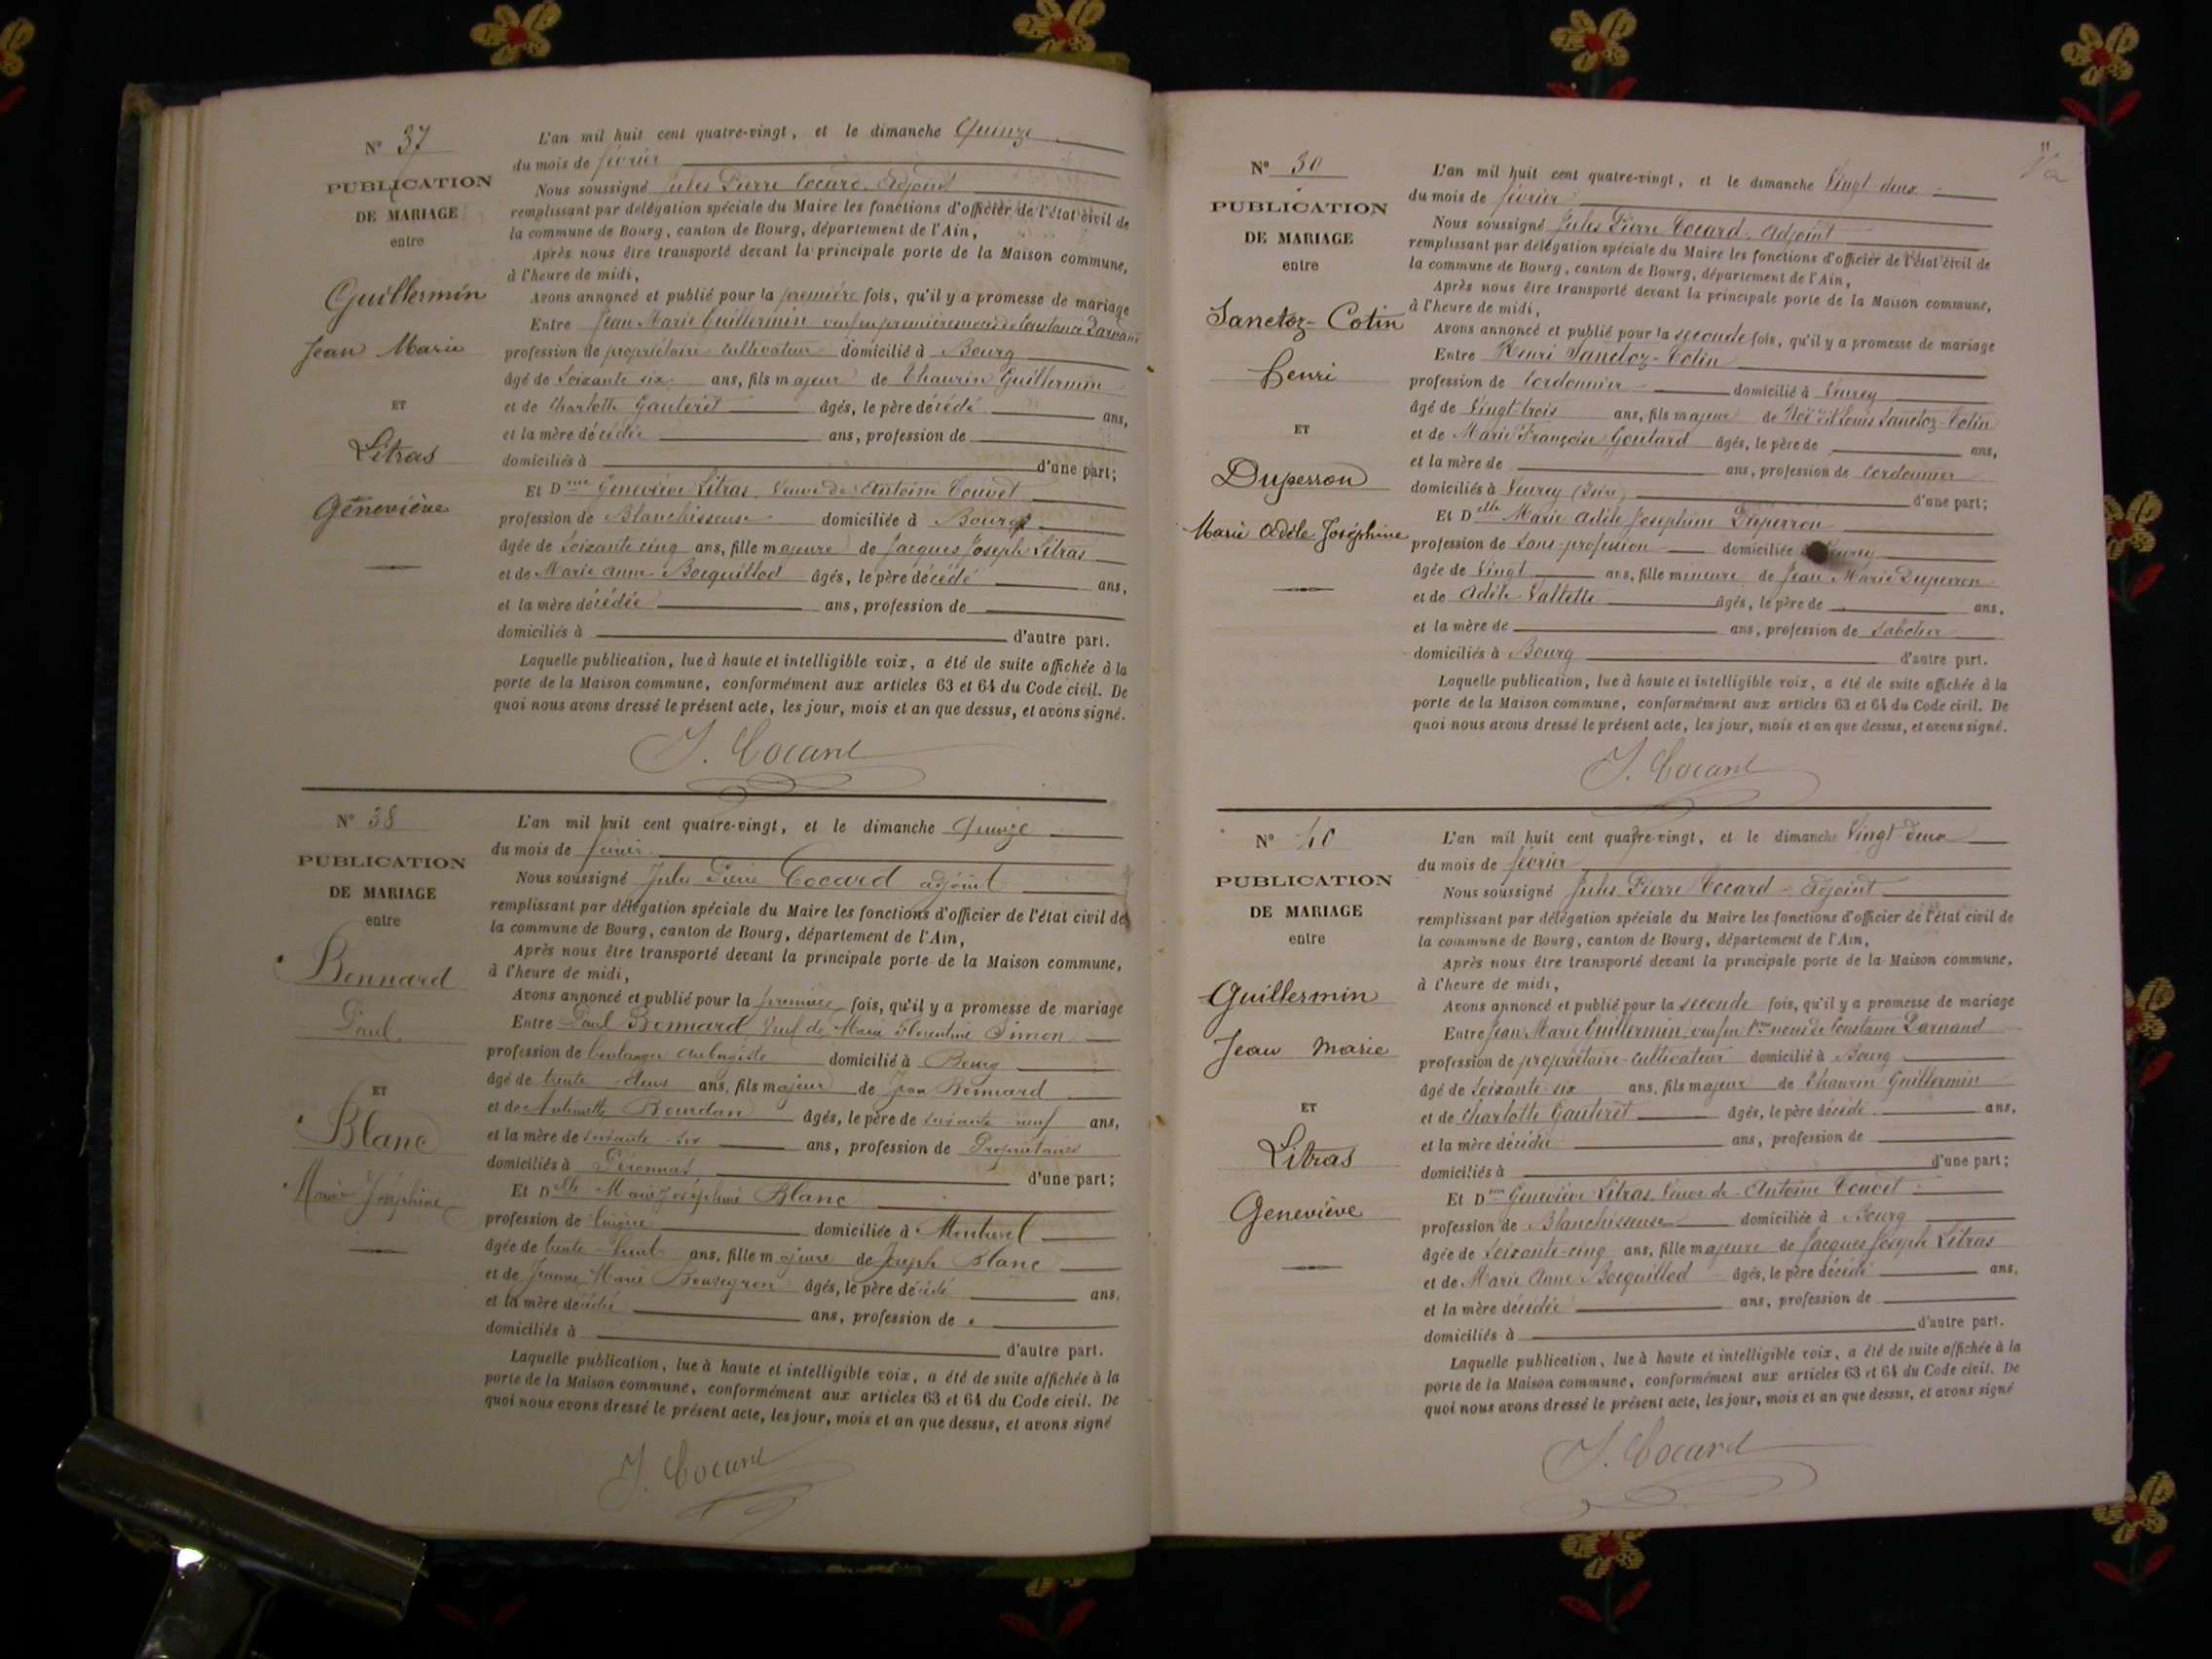 N° 37
PUBLICATION
DE MARIAGE
entre
Guillermin
Jean Marie
ET
Litras
Geneviève
L'an mil huit cent quatre-vingt, et le dimanche Quinze
du mois de février
Nous soussigné Jules Pierre Cocard, Adjoint
remplissant par délégation spéciale du Maire les fonctions d'officier de l'état civil de
la commune de Bourg, canton de Bourg, département de l'Ain,
Après nous être transporté devant la principale porte de la Maison commune,
à l'heure de midi,
Avons annoncé et publié pour la première fois, qu'il y a promesse de mariage
Entre Jean Marie Guillermin veuf en premières noces de Constance Darnand
profession de propriétaire-cultivateur domicilié à Bourg
âgé de Soixante six ans, fils majeur de Thaurin Guillermin
et de Charlotte Gauteret âgés, le père décédé ans,
et la mère décédée ans, profession de
domiciliés à d'une part;
Et Dme Geneviève Litras, Veuve de Antoine Touvet
profession de Blanchisseuse domiciliée à Bourg
âgée de Soixante cinq ans, fille majeure de Jacques Joseph Litras
et de Marie Anne Bocquillod âgés, le père décédé ans,
et la mère décédée ans, profession de
domiciliés à d'autre part.
Laquelle publication, lue à haute et intelligible voix, a été de suite affichée à la
porte de la Maison commune, conformément aux articles 63 et 64 du Code civil. De
quoi nous avons dressé le présent acte, les jour, mois et an que dessus, et avons signé.
J. Cocard
N° 38
PUBLICATION
DE MARIAGE
entre
Bonnard
Paul
ET
Blanc
Marie Joséphine
L'an mil huit cent quatre-vingt, et le dimanche Quinze
du mois de février
Nous soussigné Jules Pierre Cocard adjoint
remplissant par délégation spéciale du Maire les fonctions d'officier de l'état civil de
la commune de Bourg, canton de Bourg, département de l'Ain,
Après nous être transporté devant la principale porte de la Maison commune,
à l'heure de midi,
Avons annoncé et publié pour la première fois, qu'il y a promesse de mariage
Entre Paul Bonnard, Veuf de Marie Florentine Simon
profession de boulanger aubergiste domicilié à Bourg
âgé de trente-deux ans, fils majeur de Jean Bonnard
et de Antoinette Bourdon âgés, le père de soixante-neuf ans,
et la mère de soixante-six ans, profession de Propriétaires
domiciliés à Péronnas d'une part;
Et Delle Marie Joséphine Blanc
profession de lingère domiciliée à Montrevel
âgée de trente-huit ans, fille majeure de Joseph Blanc
et de Jeanne Marie âgés, le père décédé ans.
et la mère décédée ans, profession de
domiciliés à d'autre part.
Laquelle publication, lue à haute et intelligible voix, a été de suite affichée à la
porte de la Maison commune, conformément aux articles 63 et 64 du Code civil. De
quoi nous avons dressé le présent acte, les jour, mois et an que dessus, et avons signé
J. Cocard
N° 39
PUBLICATION
DE MARIAGE
entre
Sanctoz-Cotin
henri
ET
Duperron
Marie Adèle Joséphine
L'an mil huit cent quatre-vingt, et le dimanche Vingt deux
du mois de février
Nous soussigné Jules Pierre Cocard, Adjoint
remplissant par délégation spéciale du Maire les fonctions d'officier de l'état civil de
la commune de Bourg, canton de Bourg, département de l'Ain,
Après nous être transporté devant la principale porte de la Maison commune,
à l'heure de midi,
Avons annoncé et publié pour la seconde fois, qu'il y a promesse de mariage
Entre Henri Sanctoz-Cotin
profession de Cordonnier domicilié à Veurey
âgé de Vingt-trois ans, fils majeur de Louis Sanctoz-Cotin
et de Marie Françoise Goutard âgés, le père de ans,
et la mère de ans, profession de Cordonnier
domiciliés à Veurey (Isère) d'une part;
Et Delle Marie Adèle Joséphine Duperron
profession de Sans profession domiciliée à Veurey
âgée de Vingt ans, fille mineure de Jean Marie Duperron
et de Adèle Vallette âgés, le père de ans.
et la mère de ans, profession de Sabotier
domiciliés à Bourg d'autre part.
Laquelle publication, lue à haute et intelligible voix, a été de suite affichée à la
porte de la Maison commune, conformément aux articles 63 et 64 du Code civil. De
quoi nous avons dressé le présent acte, les jour, mois et an que dessus, et avons signé.
J. Cocard
N° 40
PUBLICATION
DE MARIAGE
entre
Guillermin
Jean Marie
ET
Litras
Geneviève
L'an mil huit cent quatre-vingt, et le dimanche Vingt deux
du mois de février
Nous soussigné Jules Pierre Cocard Adjoint
remplissant par délégation spéciale du Maire les fonctions d'officier de l'état civil de
la commune de Bourg, canton de Bourg, département de l'Ain,
Après nous être transporté devant la principale porte de la Maison commune,
à l'heure de midi,
Avons annoncé et publié pour la seconde fois, qu'il y a promesse de mariage
Entre Jean Marie Guillermin, veuf en 1res noces de Constance Darnand
profession de propriétaire-cultivateur domicilié à Bourg
âgé de Soixante-six ans, fils majeur de Thaurin Guillermin
et de Charlotte Gauteret âgés, le père décédé ans,
et la mère décédée ans, profession de
domiciliés à d'une part;
Et Dme Geneviève Litras, Veuve de Antoine Touvet
profession de Blanchisseuse domiciliée à Bourg
âgée de Soixante-cinq ans, fille majeure de Jacques Joseph Litras
et de Marie Anne Bocquillod âgés, le père décédé ans,
et la mère décédée ans, profession de
domiciliés à d'autre part.
Laquelle publication, lue à haute et intelligible voix, a été de suite affichée à la
porte de la Maison commune, conformément aux articles 63 et 64 du Code civil. De
quoi nous avons dressé le présent acte, les jour, mois et an que dessus, et avons signé
J. Cocard